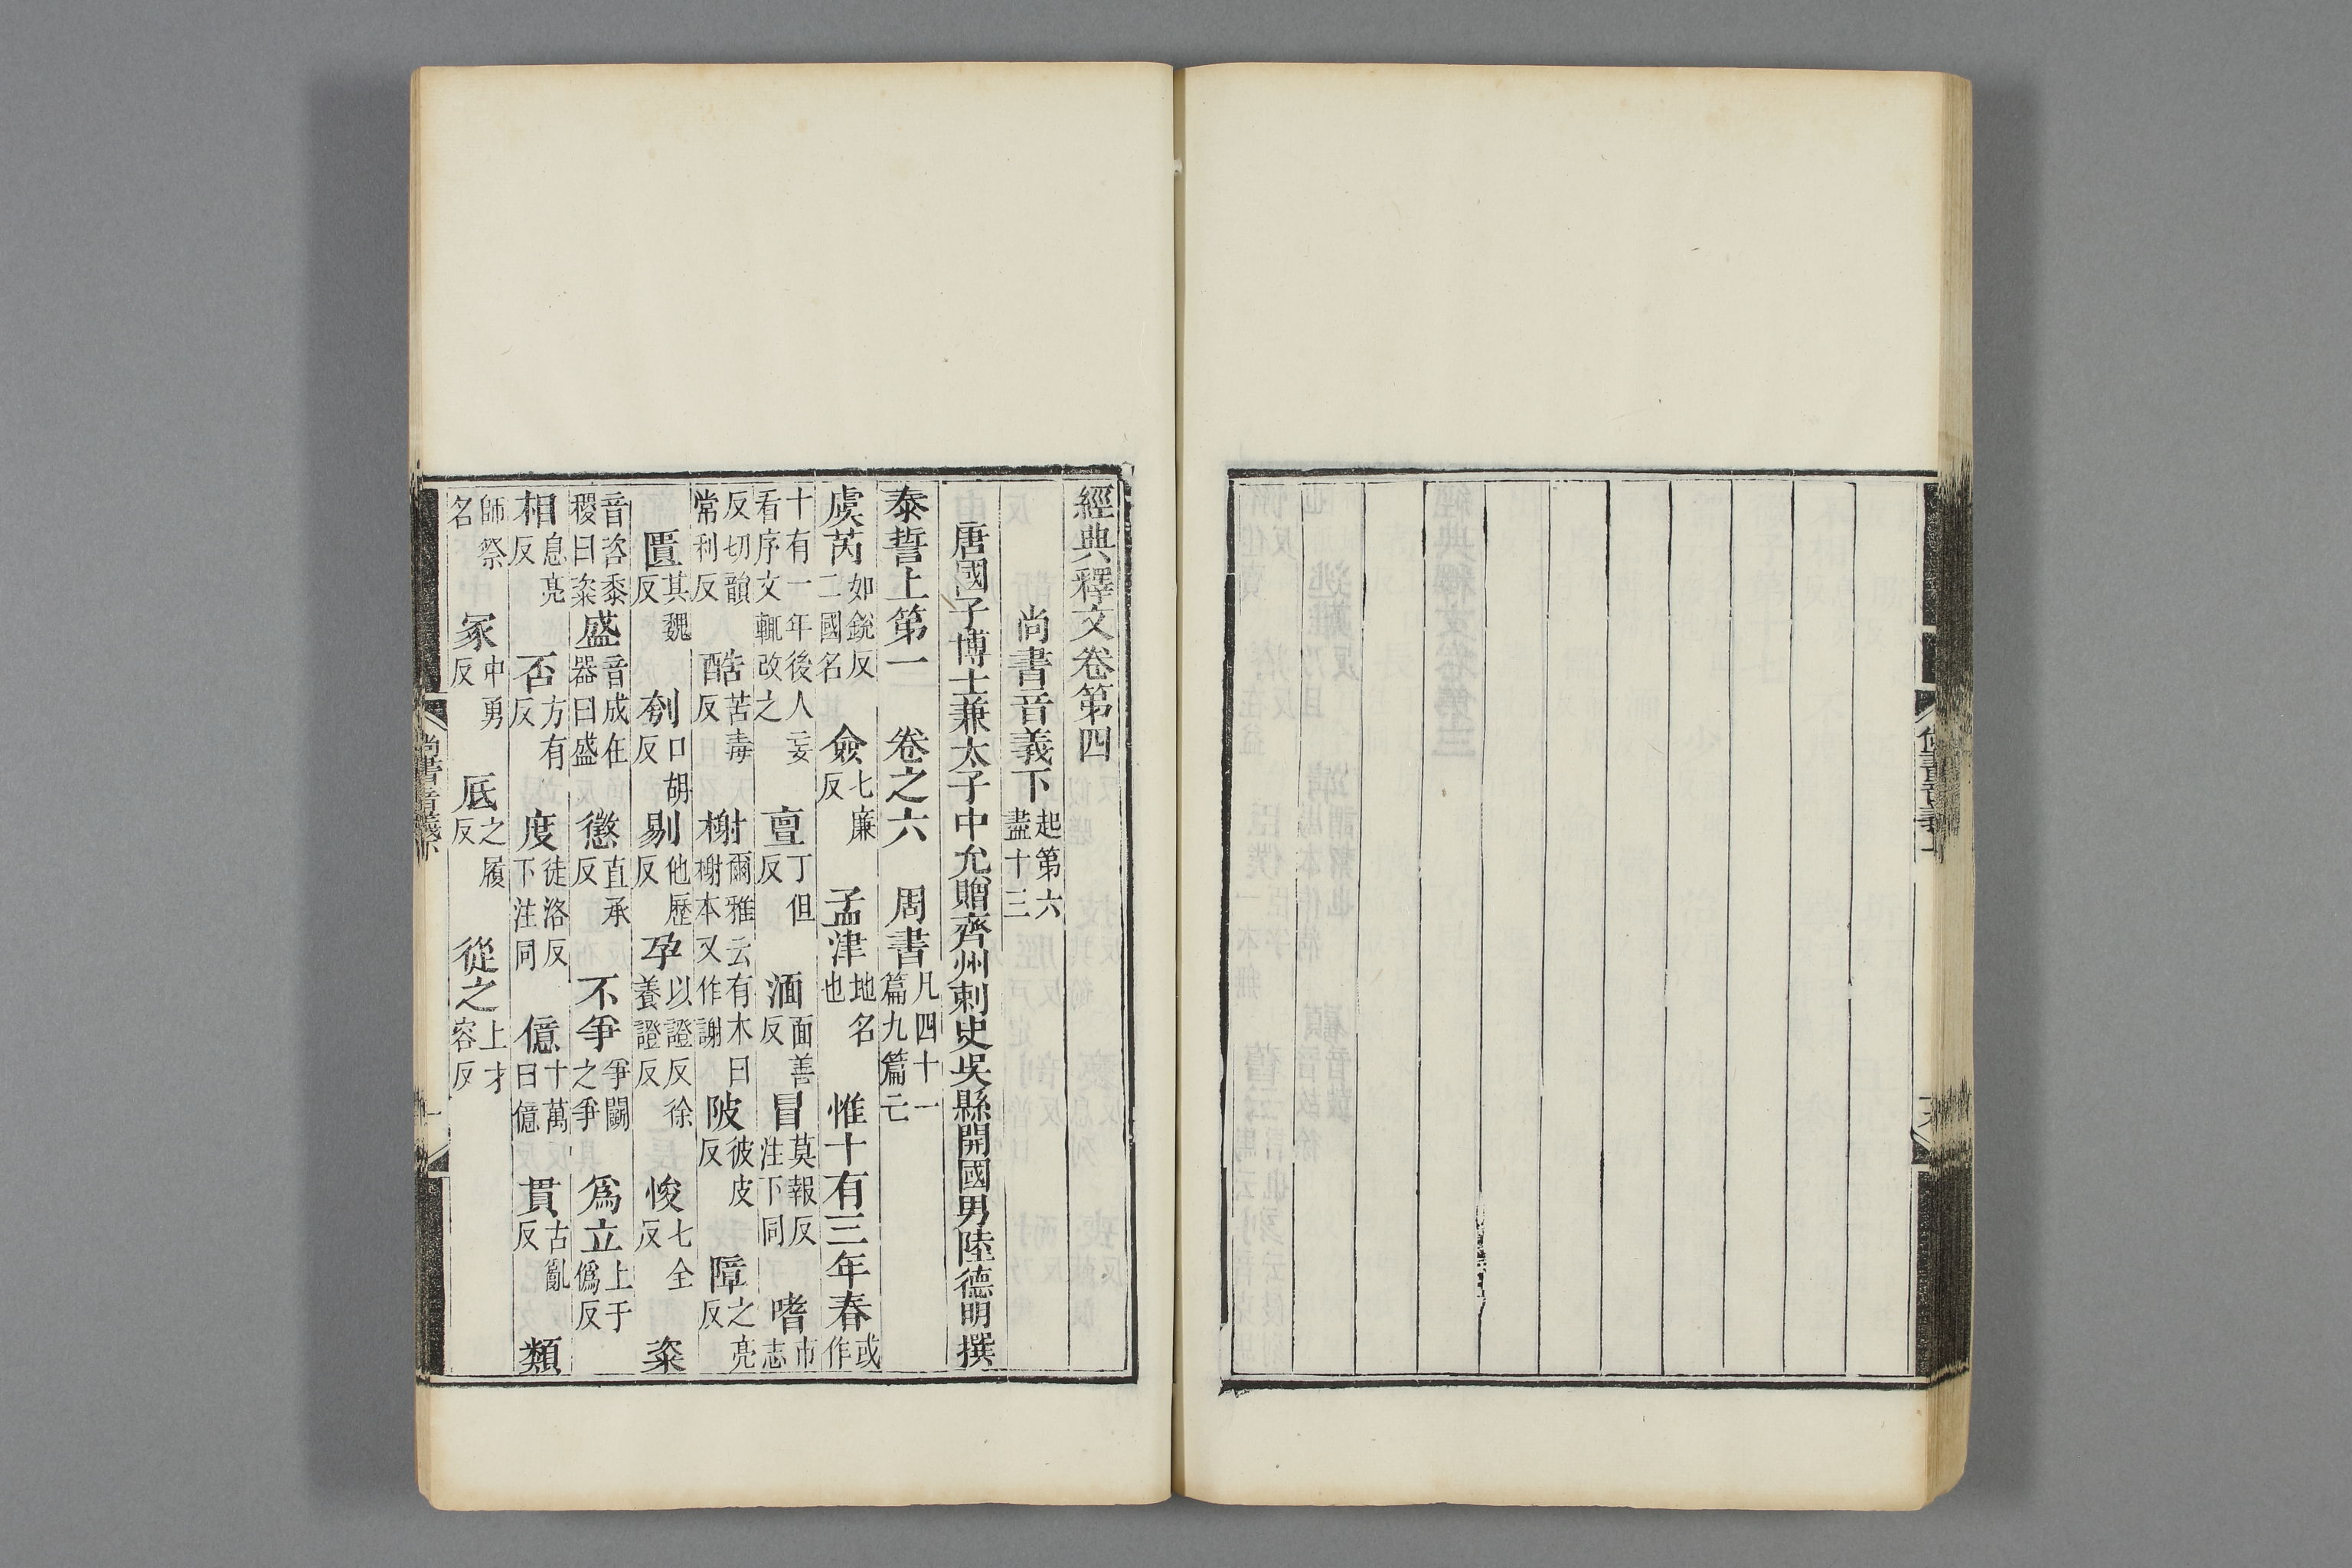 經典釋文卷第四
尚書音義下 起第六盡十三
唐國子博士兼太子中允贈齊州刺史吳縣開國男陸德明撰
泰誓上第一 卷之六 周書 凡四十一篇九篇亡
虞芮 如銳反二國名 僉 七廉反 孟津 地名也 惟十有三年春 或作
十有一年後人妄看序文輒改之 亶 丁但反 湎 面善反 冒 莫報反注下同 嗜 市志
反切韻常利反 酷 苦毒反 榭 爾雅云有木曰榭本又作謝 陂 彼皮反 障 之亮反
匱 其魏反 刳 口胡反 剔 他歷反 孕 以證反徐養證反 悛 七全反 粢
音咨黍稷曰粢 盛 音成在器曰盛 懲 直承反 不爭 爭鬭之爭 爲立 上于僞反
相 息亮反 否 方有反 度 徒洛反下注同 億 十萬曰億 貫 古亂反 類
師祭名 冢 中勇反 厎 之履反 從之 上才容反
尚書音義下 一